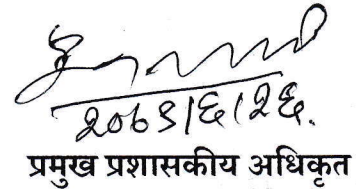 २०७९।६।२६.
प्रमुख प्रशासकीय अधिकृत